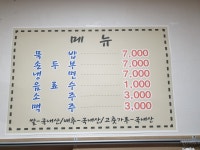 메뉴
묵 밥 7,000
손 두 부 7,000
냉 면 7,000
음 료 수 1,000
소 주 3,000
맥 주 3,000
쌀-국내산/배추-국내산/고춧가루-국내산